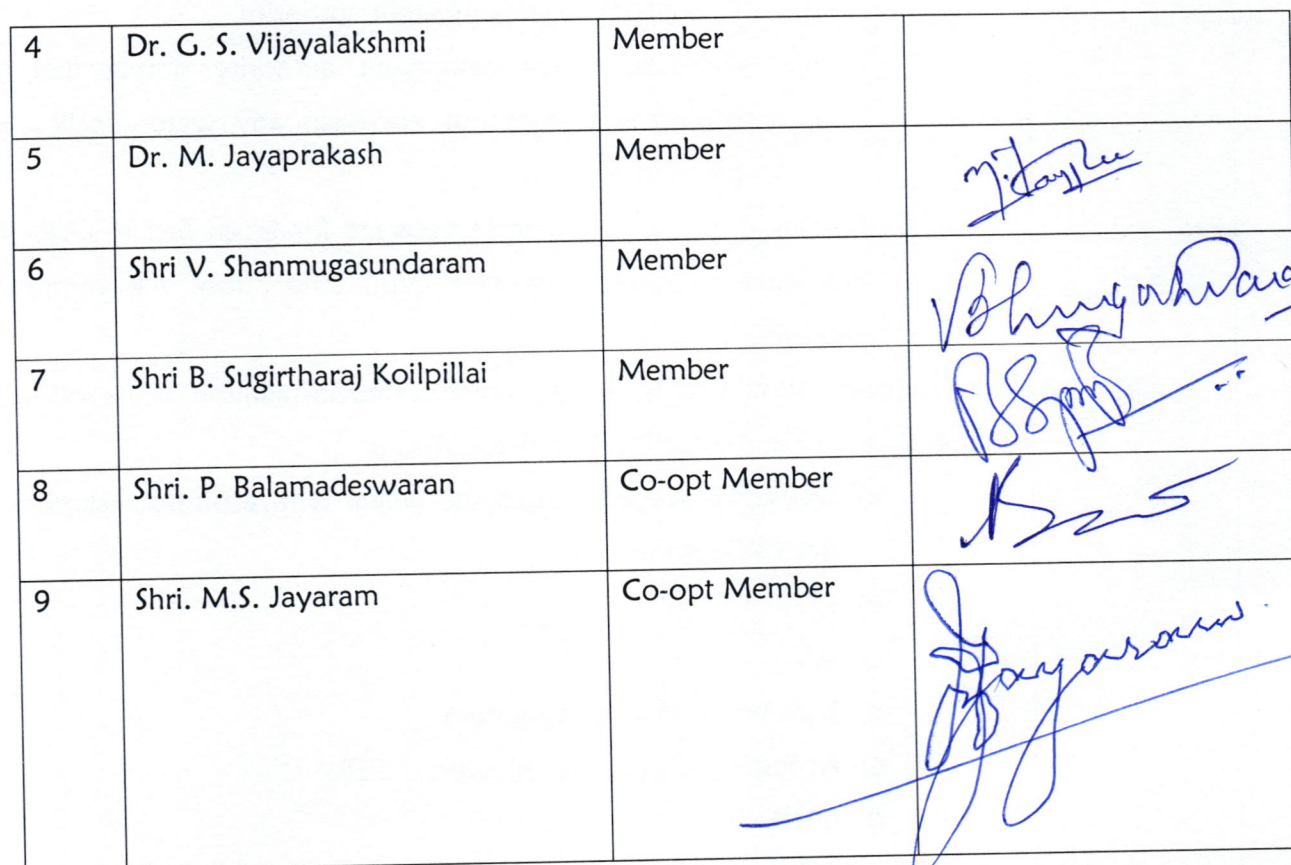 4 Dr. G. S. Vijayalakshmi Member
5 Dr. M. Jayaprakash Member
6 Shri V. Shanmugasundaram Member
7 Shri B. Sugirtharaj Koilpillai Member
8 Shri. P. Balamadeswaran Co-opt Member
9 Shri. M.S. Jayaram Co-opt Member